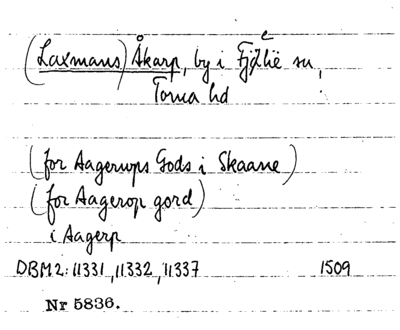 (Laxmans) Åkarp, by i Fjelie sn,
Torna hd
(for Aagerups Gods i Skaane)
(for Aagerop gord)
i Aagerp
DBM2: 11331, 11332, 11337 1509
Nr 5836.